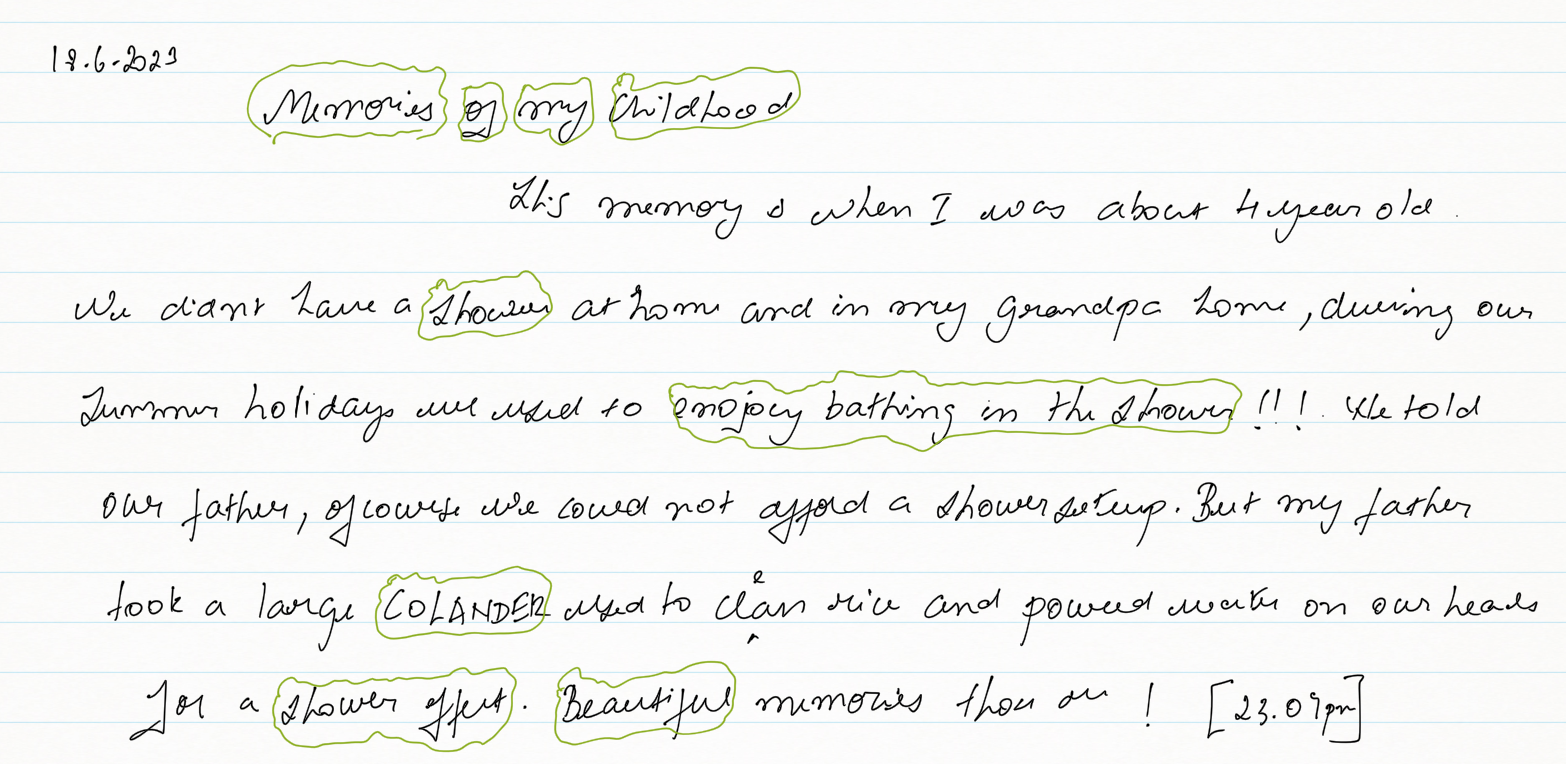 18.6.2023
Memories of my Childhood
This memory is when I was about 4 year old.
We didnt have a shower at home and in my grandpa home, during our
Summer holidays we used to enojoy bathing in the shower !!!. We told
our father, ofcourse we could not afford a shower setup. But my father
took a large COLANDER used to clean rice and poured water on our heads
for a shower effect. Beautiful memories those are ! [23.09pm]